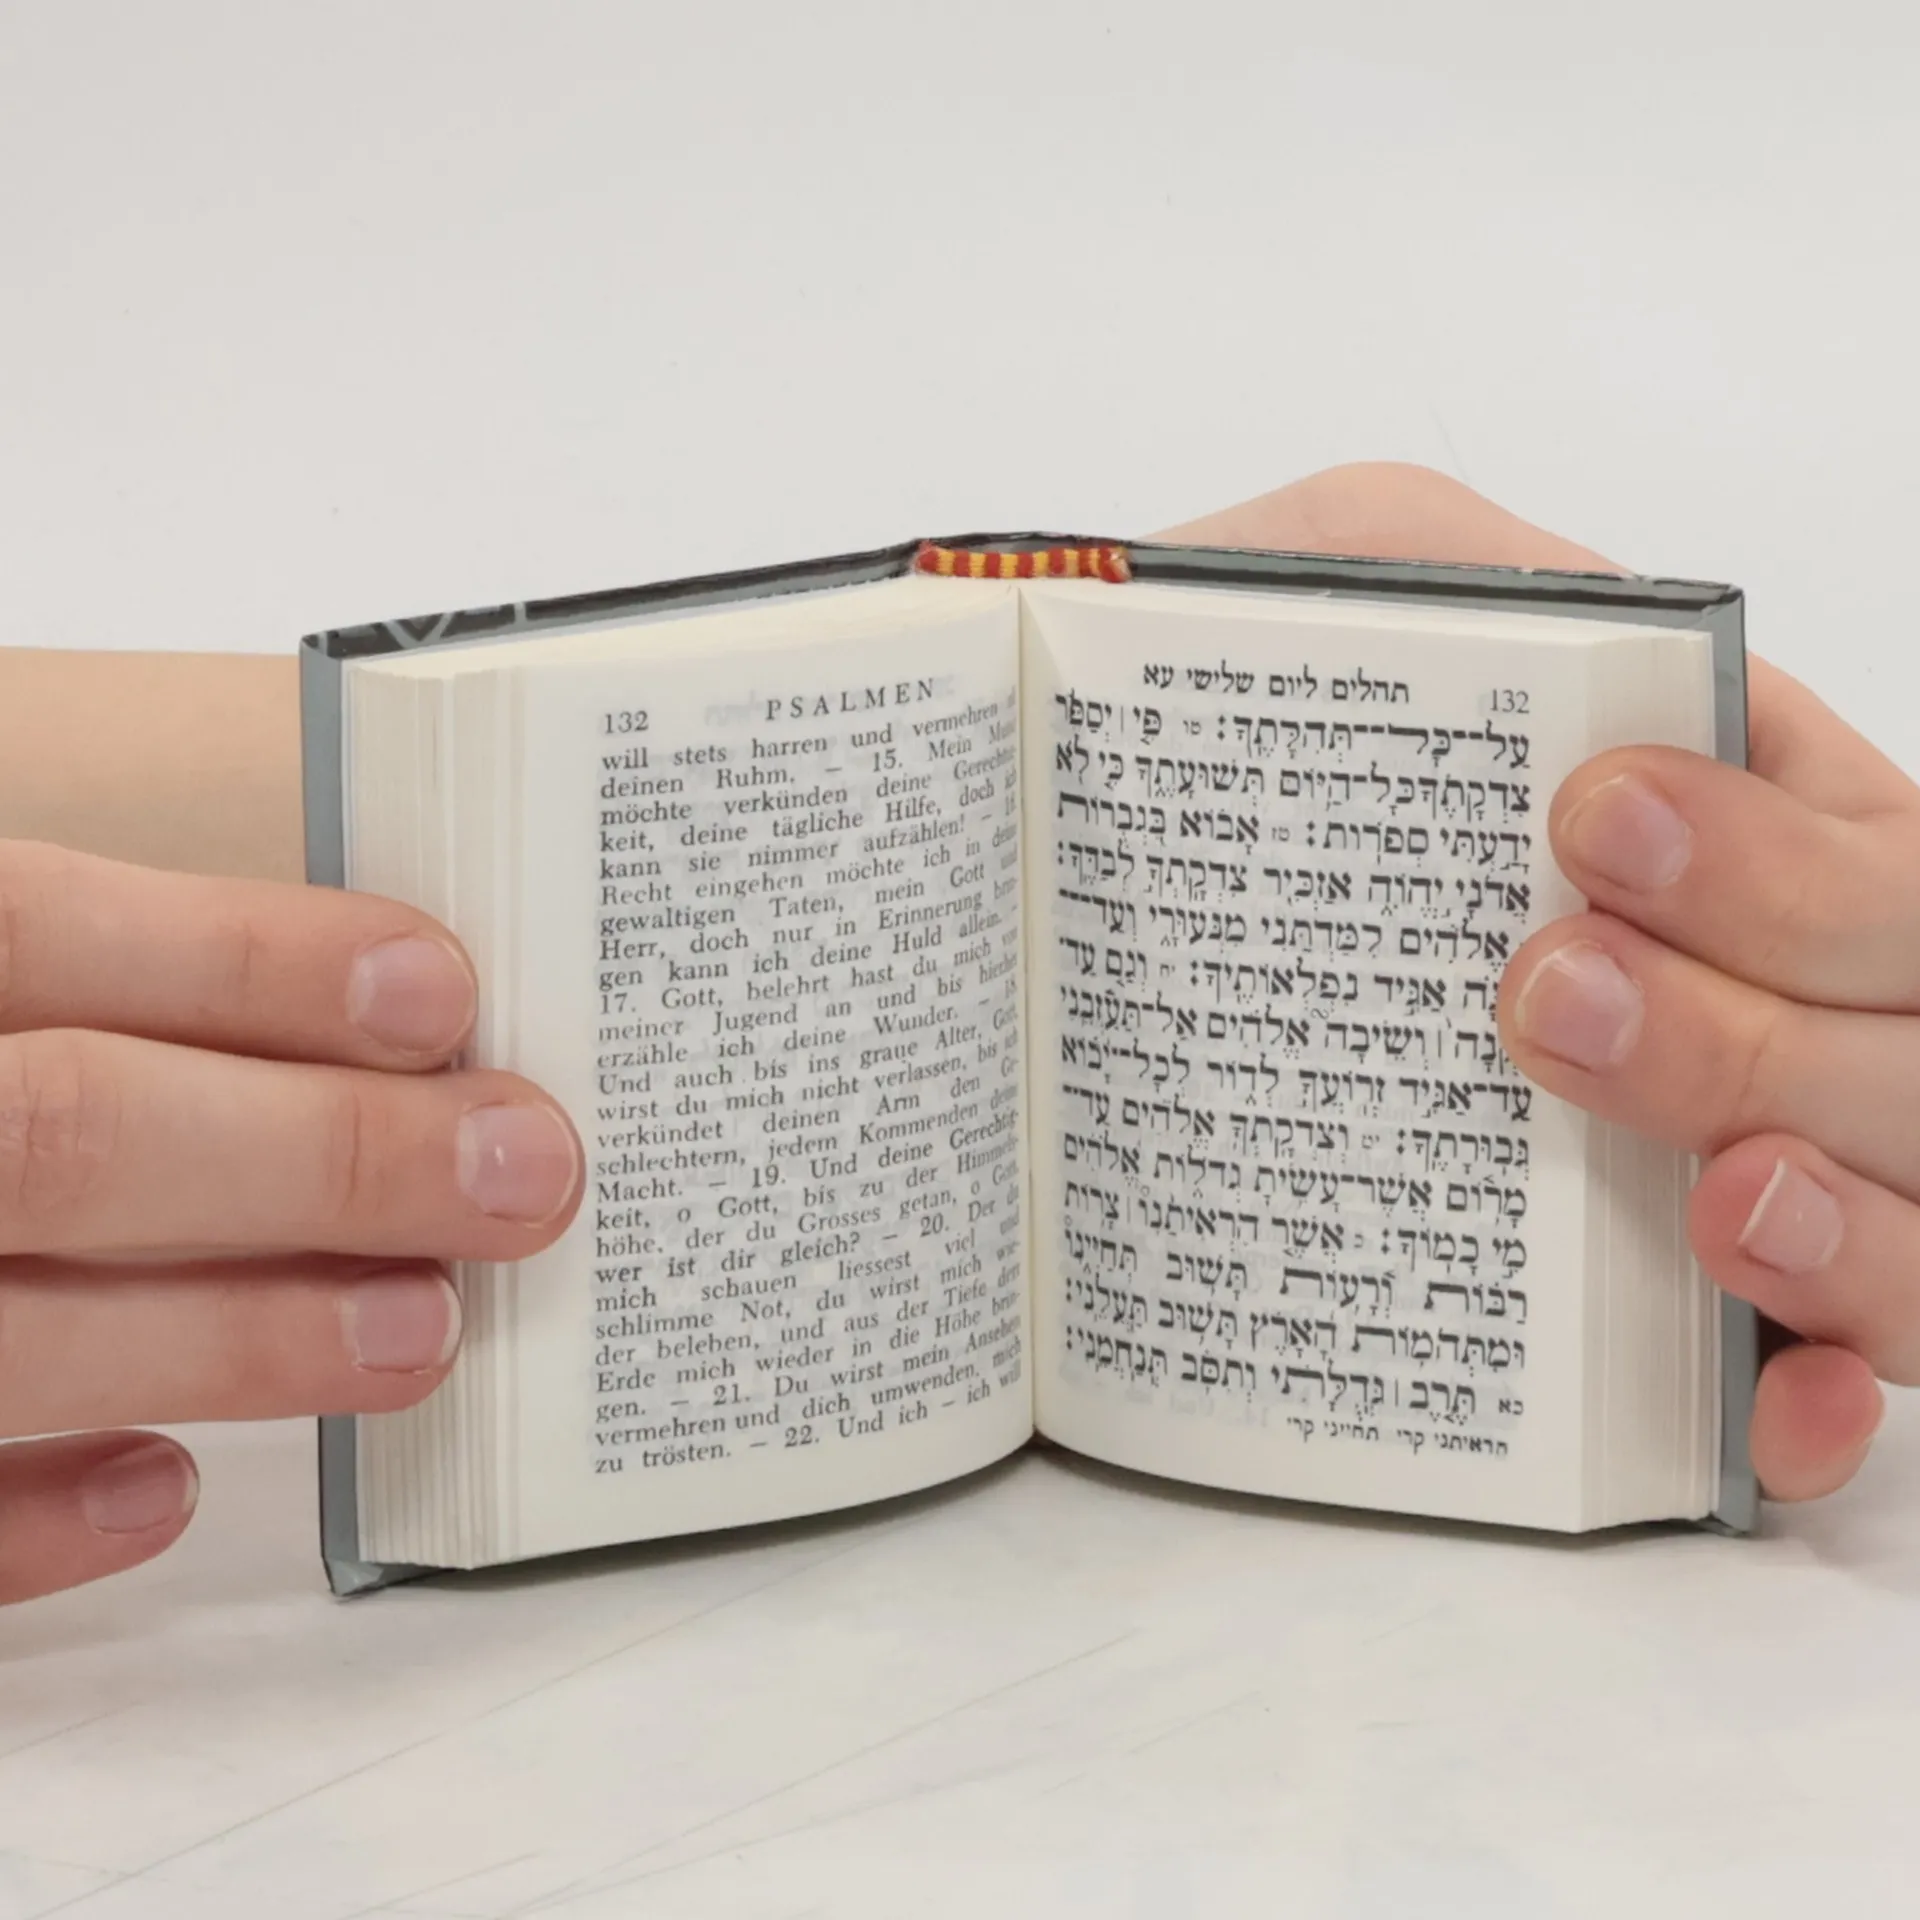 132 PSALMEN
will stets harren und vermehren all
deinen Ruhm. – 15. Mein Mund
möchte verkünden deine Gerechtig-
keit, deine tägliche Hilfe, doch ich
kann sie nimmer aufzählen! – 16.
Recht eingehen möchte ich in deine
gewaltigen Taten, mein Gott und
Herr, doch nur in Erinnerung brin-
gen kann ich deine Huld allein. –
17. Gott, belehrt hast du mich von
meiner Jugend an und bis hierher
erzähle ich deine Wunder. – 18.
Und auch bis ins graue Alter, Gott,
wirst du mich nicht verlassen, bis ich
verkündet deinen Arm den Ge-
schlechtern, jedem Kommenden deine
Macht. – 19. Und deine Gerechtig-
keit, o Gott, bis zu der Himmels-
höhe, der du Grosses getan, o Gott,
wer ist dir gleich? – 20. Der du
mich schauen liessest viel und
schlimme Not, du wirst mich wie-
der beleben, und aus der Tiefe der
Erde mich wieder in die Höhe brin-
gen. – 21. Du wirst mein Ansehen
vermehren und dich umwenden, mich
zu trösten. – 22. Und ich – ich will
132 תהלים ליום שלישי עא
עַל־כָּל־תְּהִלָּתֶךָ: טו פִּי | יְסַפֵּר
צִדְקָתֶךָ כָּל־הַיּוֹם תְּשׁוּעָתֶךָ כִּי לֹא
יָדַעְתִּי סְפֹרוֹת: טז אָבוֹא בִּגְבֻרוֹת
אֲדֹנָי יֱהֹוִה אַזְכִּיר צִדְקָתְךָ לְבַדֶּךָ:
אֱלֹהִים לִמַּדְתַּנִי מִנְּעוּרָי וְעַד־
אַגִּיד נִפְלְאוֹתֶיךָ: יח וְגַם עַד־
זִקְנָה | וְשֵׂיבָה אֱלֹהִים אַל־תַּעַזְבֵנִי
עַד־אַגִּיד זְרוֹעֲךָ לְדוֹר לְכָל־יָבוֹא
גְּבוּרָתֶךָ: יט וְצִדְקָתְךָ אֱלֹהִים עַד־
מָרוֹם אֲשֶׁר־עָשִׂיתָ גְדֹלוֹת אֱלֹהִים
מִי כָמוֹךָ: כ אֲשֶׁר הִרְאִיתַנוּ | צָרוֹת
רַבּוֹת וְרָעוֹת תָּשׁוּב תְּחַיֵּינוּ
וּמִתְּהֹמוֹת הָאָרֶץ תָּשׁוּב תַּעֲלֵנִי:
כא תֶּרֶב | גְּדֻלָּתִי וְתִסֹּב תְּנַחֲמֵנִי:
הראיתני קרי תחייני קרי